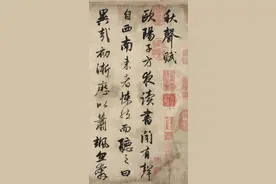 秋聲賦
歐陽子方夜讀書聞有聲
自西南來者悚然而聽之曰
異哉初淅瀝以蕭颯忽奔